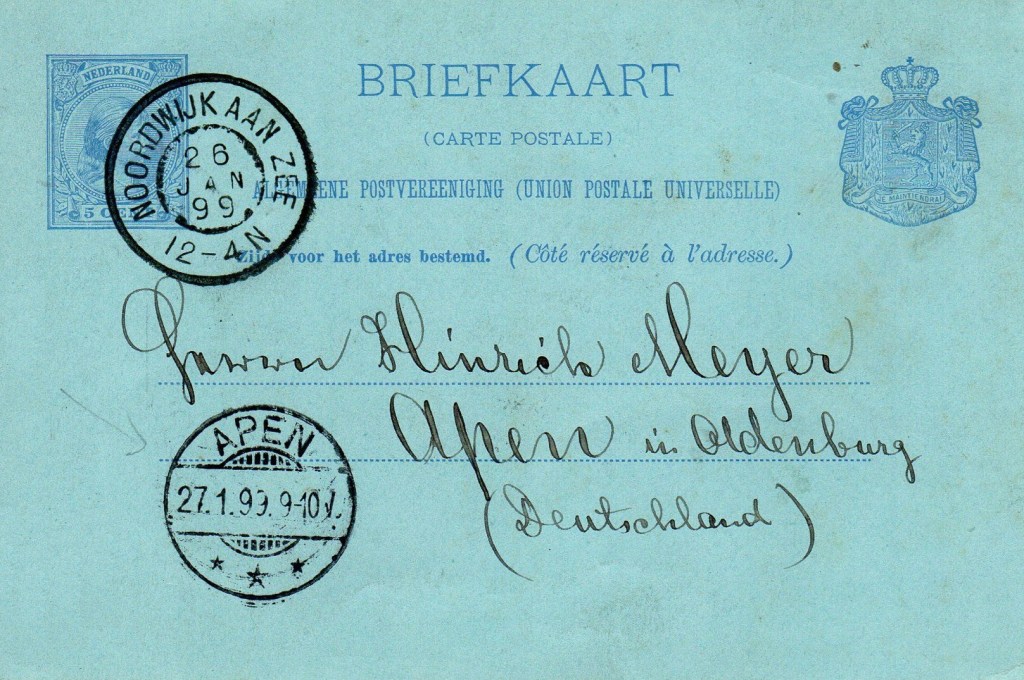 NEDERLAND
5 C
BRIEFKAART
(CARTE POSTALE)
ALGEMEENE POSTVEREENIGING (UNION POSTALE UNIVERSELLE)
Zijde voor het adres bestemd. (Côté réservé à l'adresse.)
JE MAINTIENDRAI
NOORDWIJK AAN ZEE
26
JAN
99
12-4N
Herrn Hinrich Meyer
Apen in Oldenburg
(Deutschland)
APEN
27.1.99.9-10V.